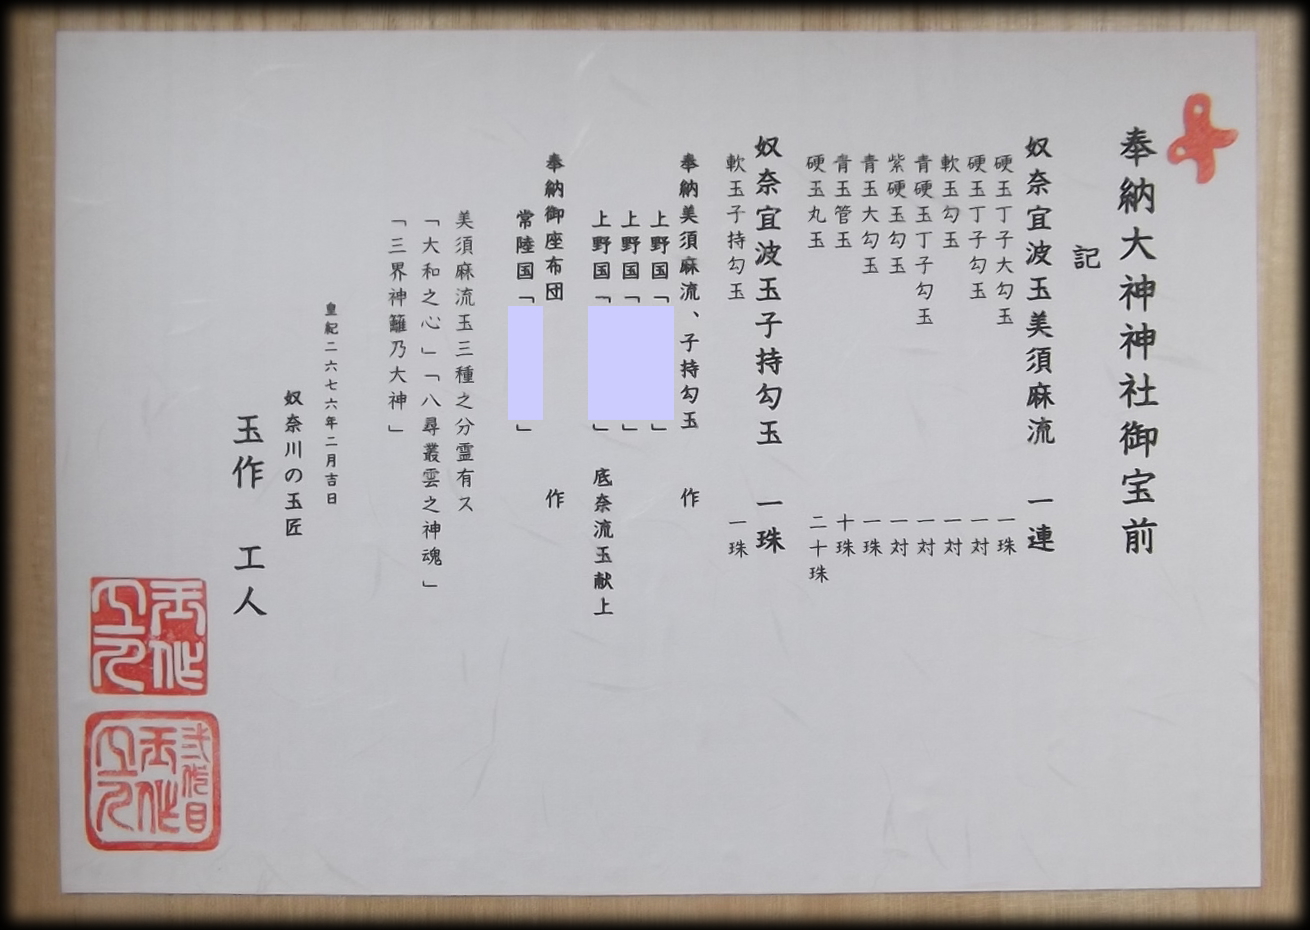 奉納大神神社御宝前
記
奴奈宜波玉美須麻流 一連
硬玉丁子大勾玉 一珠
硬玉丁子勾玉 一対
軟玉勾玉 一対
青硬玉丁子勾玉 一対
紫硬玉勾玉 一対
青玉大勾玉 一珠
青玉管玉 十珠
硬玉丸玉 二十珠
奴奈宜波玉子持勾玉 一珠
軟玉子持勾玉 一珠
奉納美須麻流、子持勾玉 作
上野国「 」
上野国「 」
上野国「 」 底奈流玉献上
奉納御座布団 作
常陸国「 」
美須麻流玉三種之分霊有ス
「大和之心」「八尋叢雲之神魂」
「三界神籬乃大神」
皇紀二六七六年二月吉日
奴奈川の玉匠
玉作 工人
玉作
工人
弐代目
玉作
工人